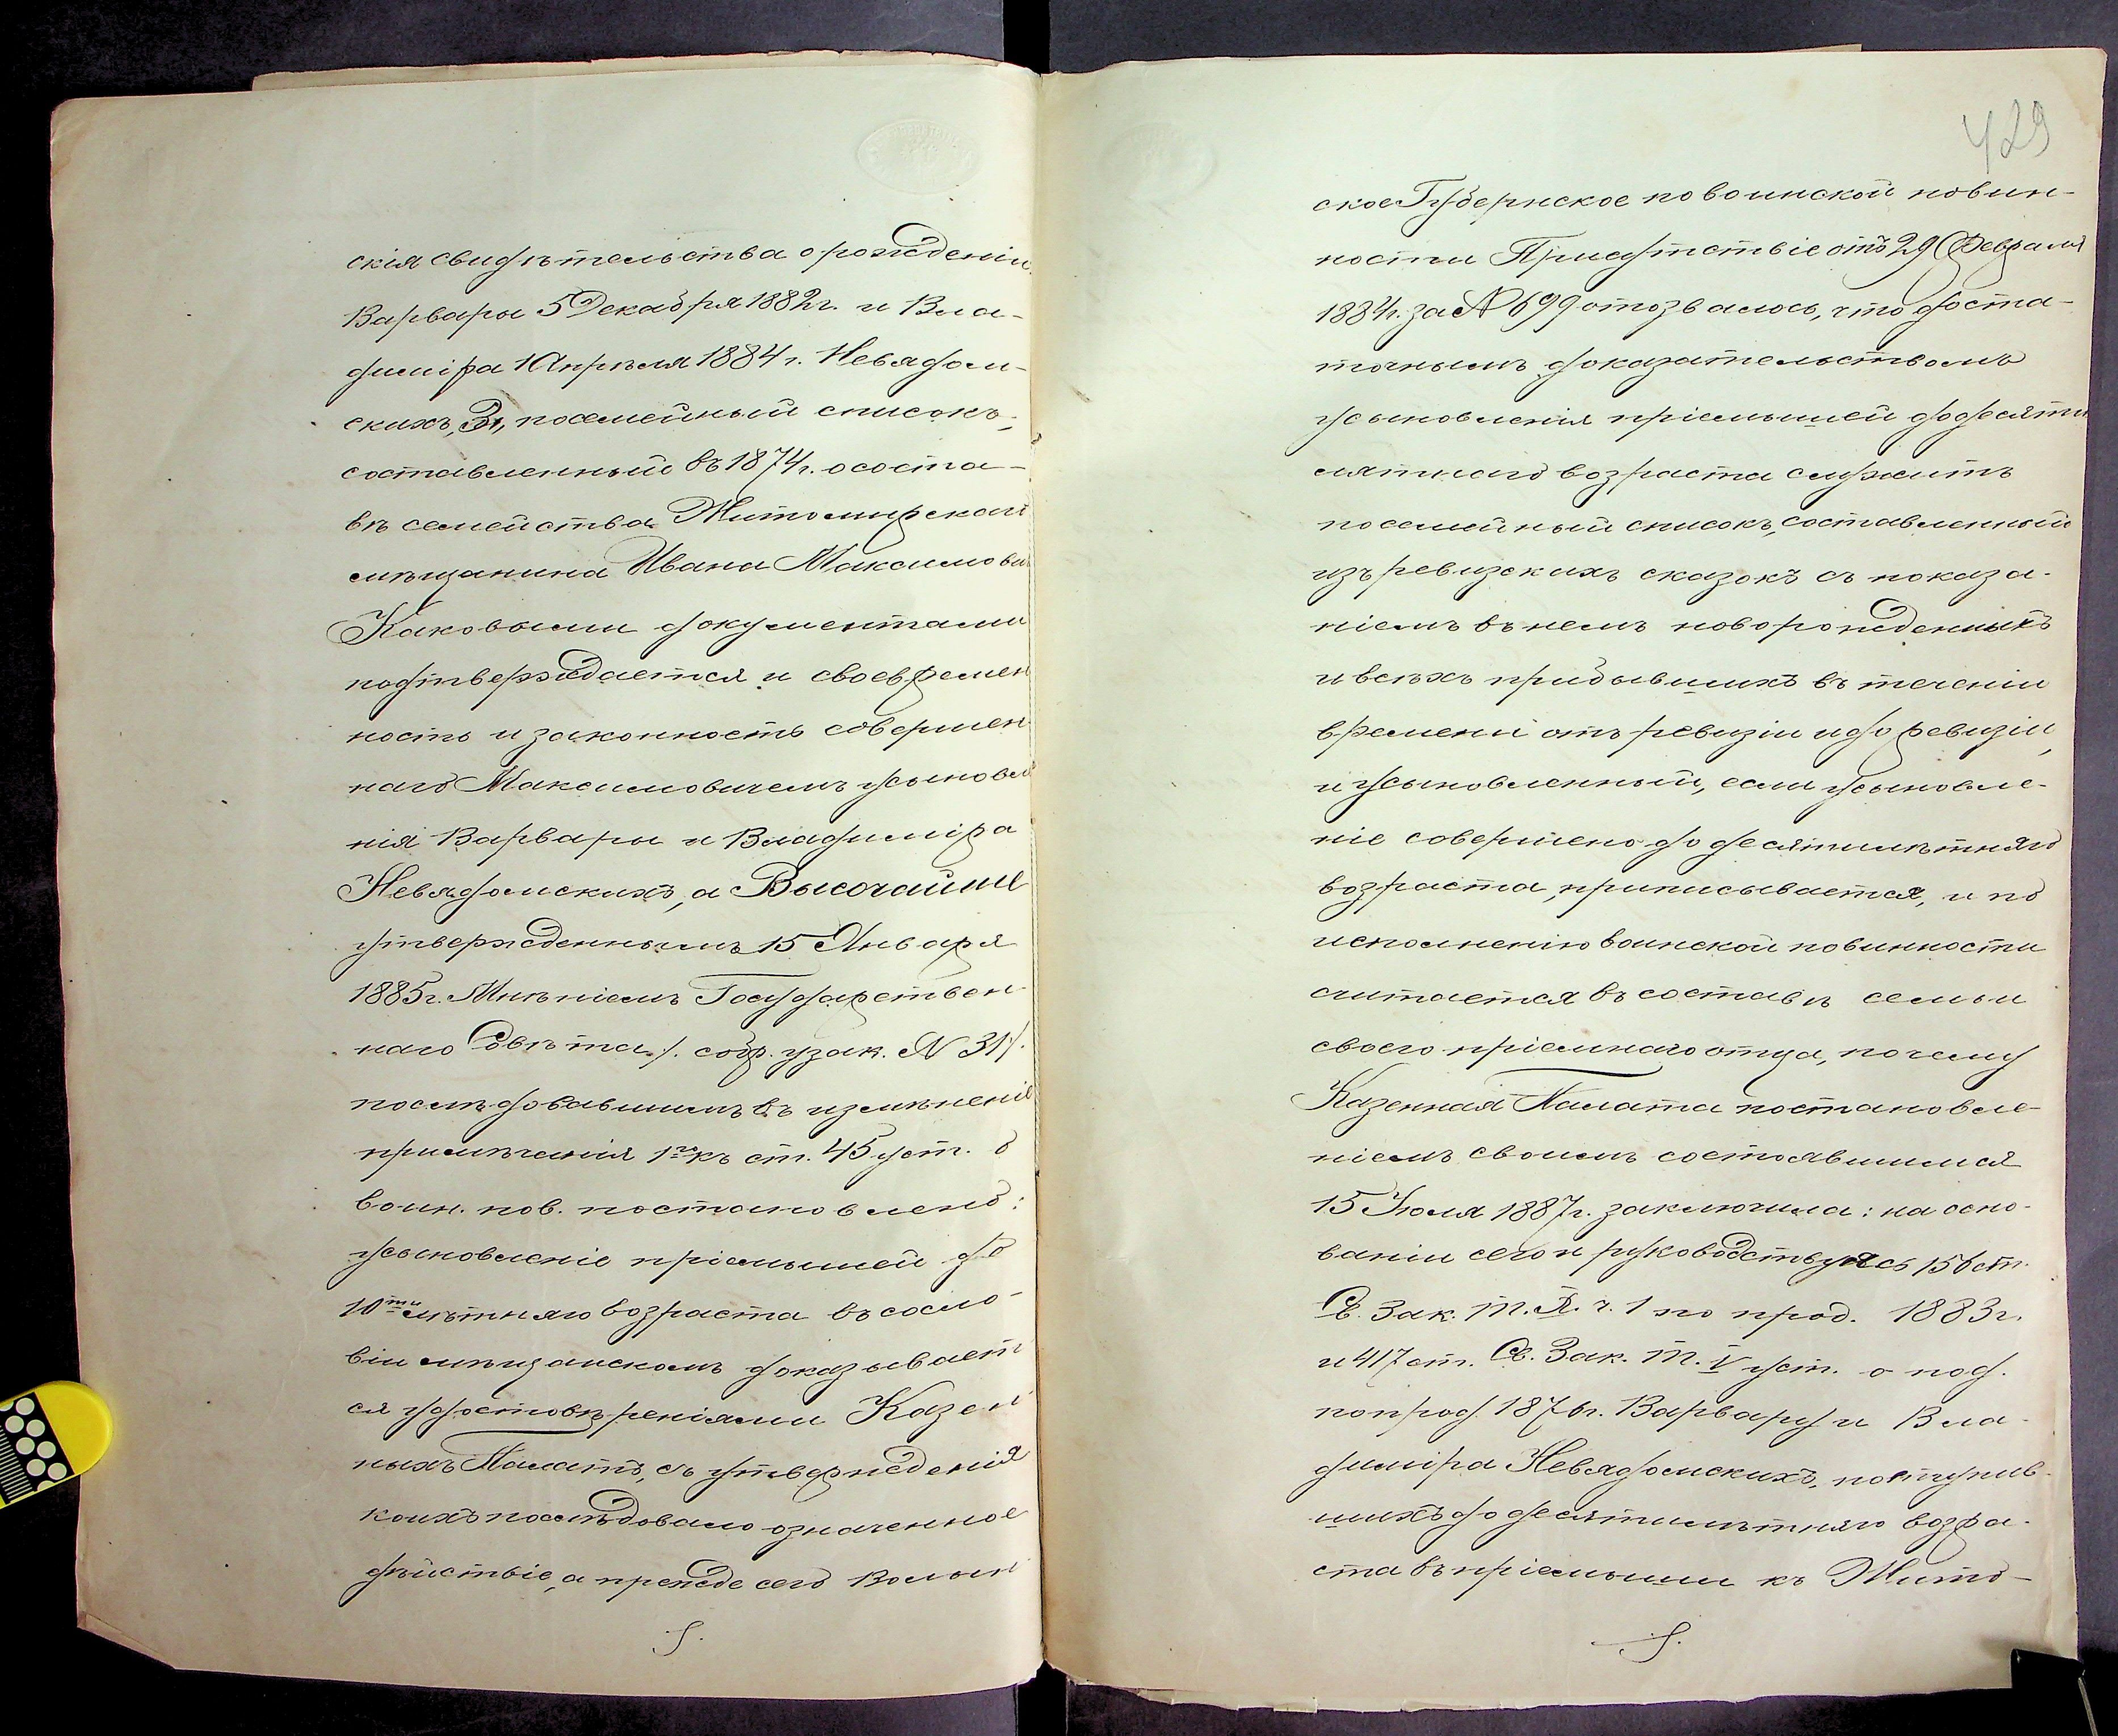 скія свидѣтельства о рожденіи
Варвары 5 Декабря 1882 г. и Вла-
диміра 1 Апрѣля 1884 г. Невядом-
скихъ, 3, посемейный списокъ,
составленный въ 1874 г. о соста-
вѣ семейства Житомирскаго
мѣщанина Ивана Максимови
Каковыми документами
подтверждается и своевремен
ность и законность совершен
наго Максимовичемъ усыновле
нія Варвары и Владиміра
Невядомскихъ, а Высочайше
утвержденнымъ 15 Января
1885 г. Мнѣніемъ Государствен-
наго Совѣта /. собр. узак. N 31 /.
послѣдовавшимъ въ измѣненіе
примѣчанія 1го къ ст. 45 уст. о
воин. пов. постановлено:
усыновленіе пріемышей до
10ти лѣтняго возраста въ сосло-
віи мѣщанскомъ доказывает
ся удостовѣреніями Казен
ныхъ Палатъ, съ утвержденія
коихъ послѣдовало означенное
дѣйствіе, а прежде сего Волын
429
ское Губернское по воинской повин-
ности Присутствіе отъ 29 Февраля
1884 г. за N 699 отозвалось, что доста-
точнымъ доказательствомъ
усыновленія пріемышей до десяти
лѣтняго возраста служитъ
посемейный списокъ, составленный
изъ ревизскихъ сказокъ съ показа-
ніемъ въ немъ новорожденныхъ
и всѣхъ прибывшихъ въ теченіи
времени отъ ревизіи и до ревизіи,
и усыновленный, если усыновле-
ніе совершено до десятилѣтняго
возраста, приписывается, и по
исполненію воинской повинности
считается въ составѣ семьи
своего пріемнаго отца, почему
Казенная Палата постановле-
ніемъ своимъ состоявшимся
15 Іюля 1887 г. заключила: на осно-
ваніи сего и руководствуясь 156 ст.
Св. Зак. т. X. ч. 1 по прод. 1883 г.
и 417 ст. Св. Зак. т. V уст. о под.
по прод. 1876 г. Варвару и Вла-
диміра Невядомскихъ, поступив-
шихъ до десятилѣтняго возра-
ста въ пріемыши къ Жито-